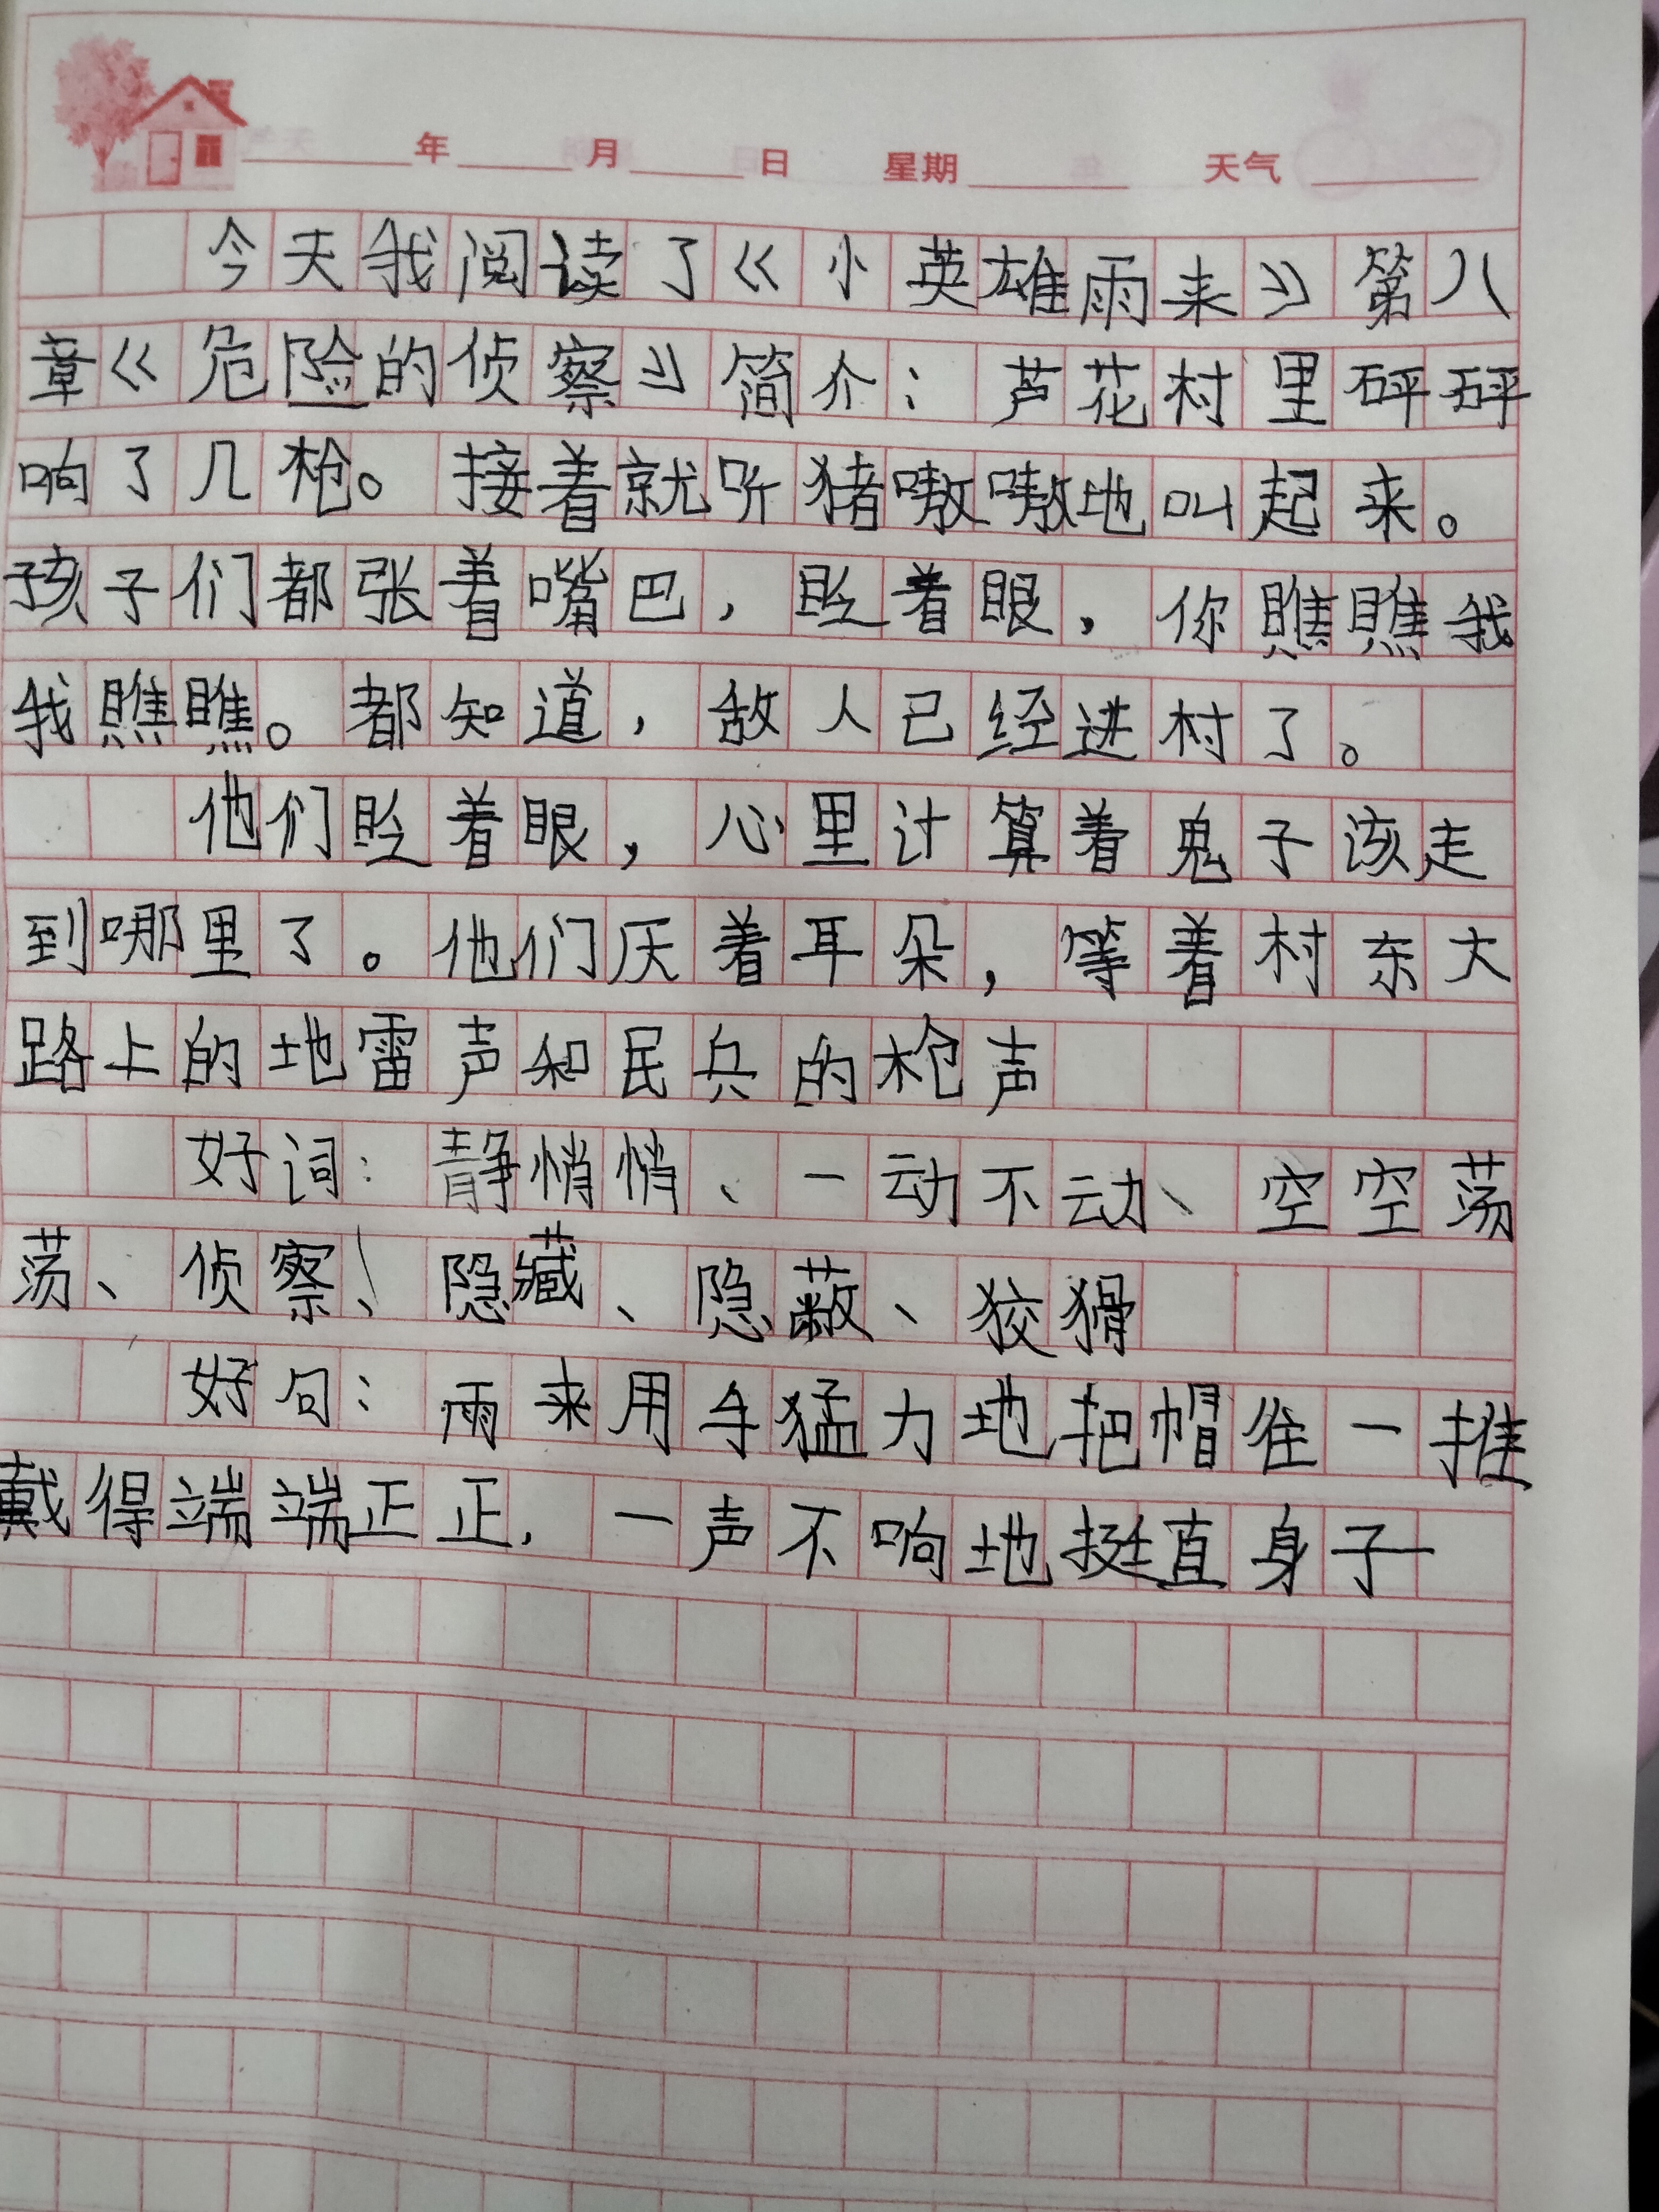 年 月 日 星期 天气
今天我阅读了《小英雄雨来》第八
章《危险的侦察》简介：芦花村里砰砰
响了几枪。接着就听猪嗷嗷地叫起来。
孩子们都张着嘴巴，眨着眼，你瞧瞧我
我瞧瞧。都知道，敌人已经进村了。
他们眨着眼，心里计算着鬼子该走
到哪里了。他们厌着耳朵，等着村东大
路上的地雷声和民兵的枪声
好词：静悄悄、一动不动、空空荡
荡、侦察、隐藏、隐蔽、狡猾
好句：雨来用手猛力地把帽往一推
戴得端端正正，一声不响地挺直身子